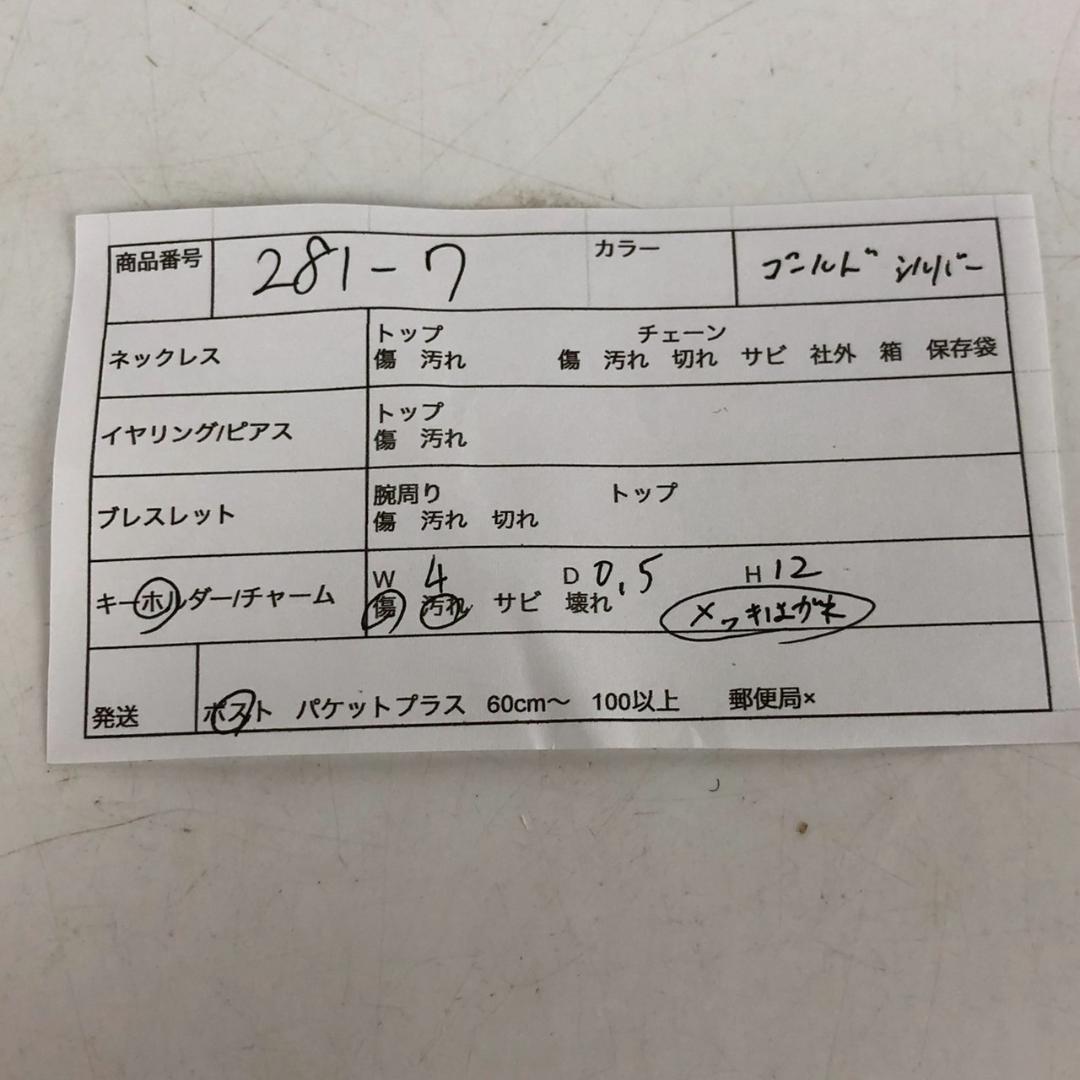 商品番号 281-7 カラー ゴールド シルバー
ネックレス トップ チェーン
傷 汚れ 傷 汚れ 切れ サビ 社外 箱 保存袋
イヤリング/ピアス トップ
傷 汚れ
ブレスレット 腕周り トップ
傷 汚れ 切れ
キーホルダー/チャーム W 4 D 0.5 H 12
傷 汚れ サビ 壊れ メッキはがれ
発送 ポスト パケットプラス 60cm〜 100以上 郵便局×